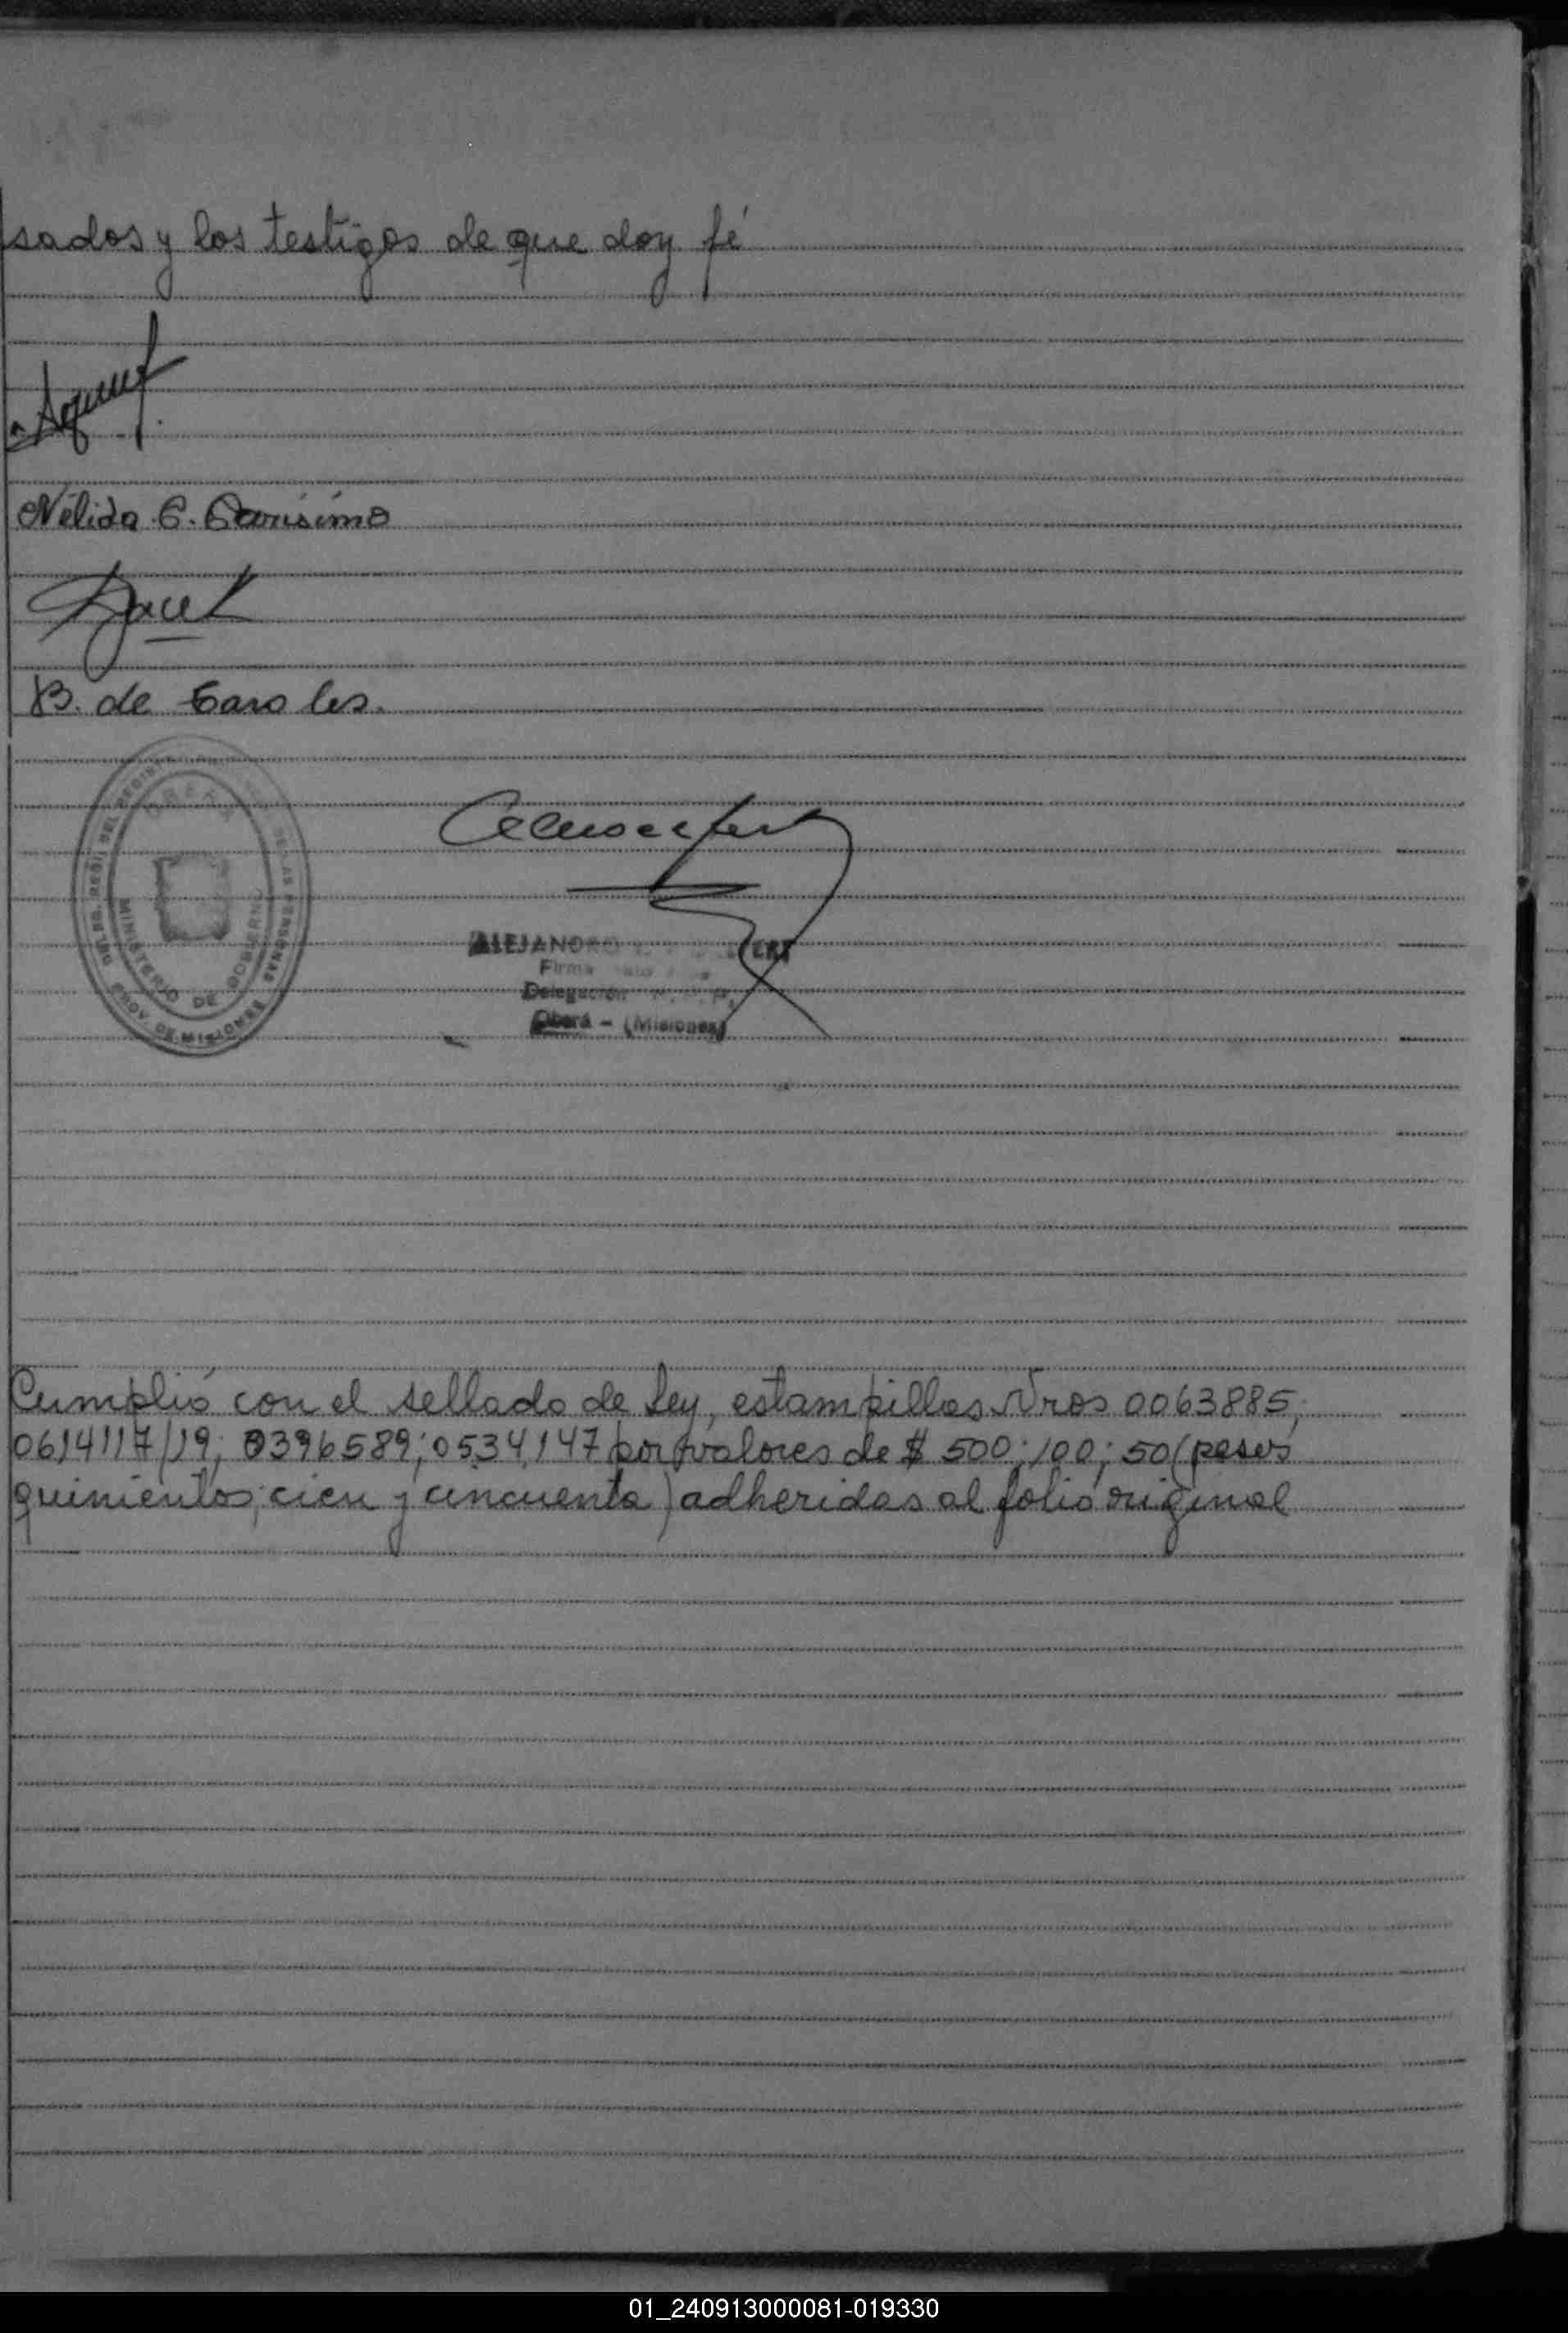 sados y los testigos de que doy fé
Nélida C. Carísimo
B. de Caroles.
DIR. GRAL. DEL REGISTRO DE LAS PERSONAS
PROV. DE MISIONES
MINISTERIO DE GOBIERNO
ALEJANDRO
Firma
Delegación
Oberá - (Misiones)
Cumplió con el sellado de Ley, estampillas Nros 0063885;
0614117/19; 0396589; 0534147 por valores de $ 500; 100; 50 (pesos
quinientos; cien y cincuenta) adheridas al folio original
01_240913000081-019330